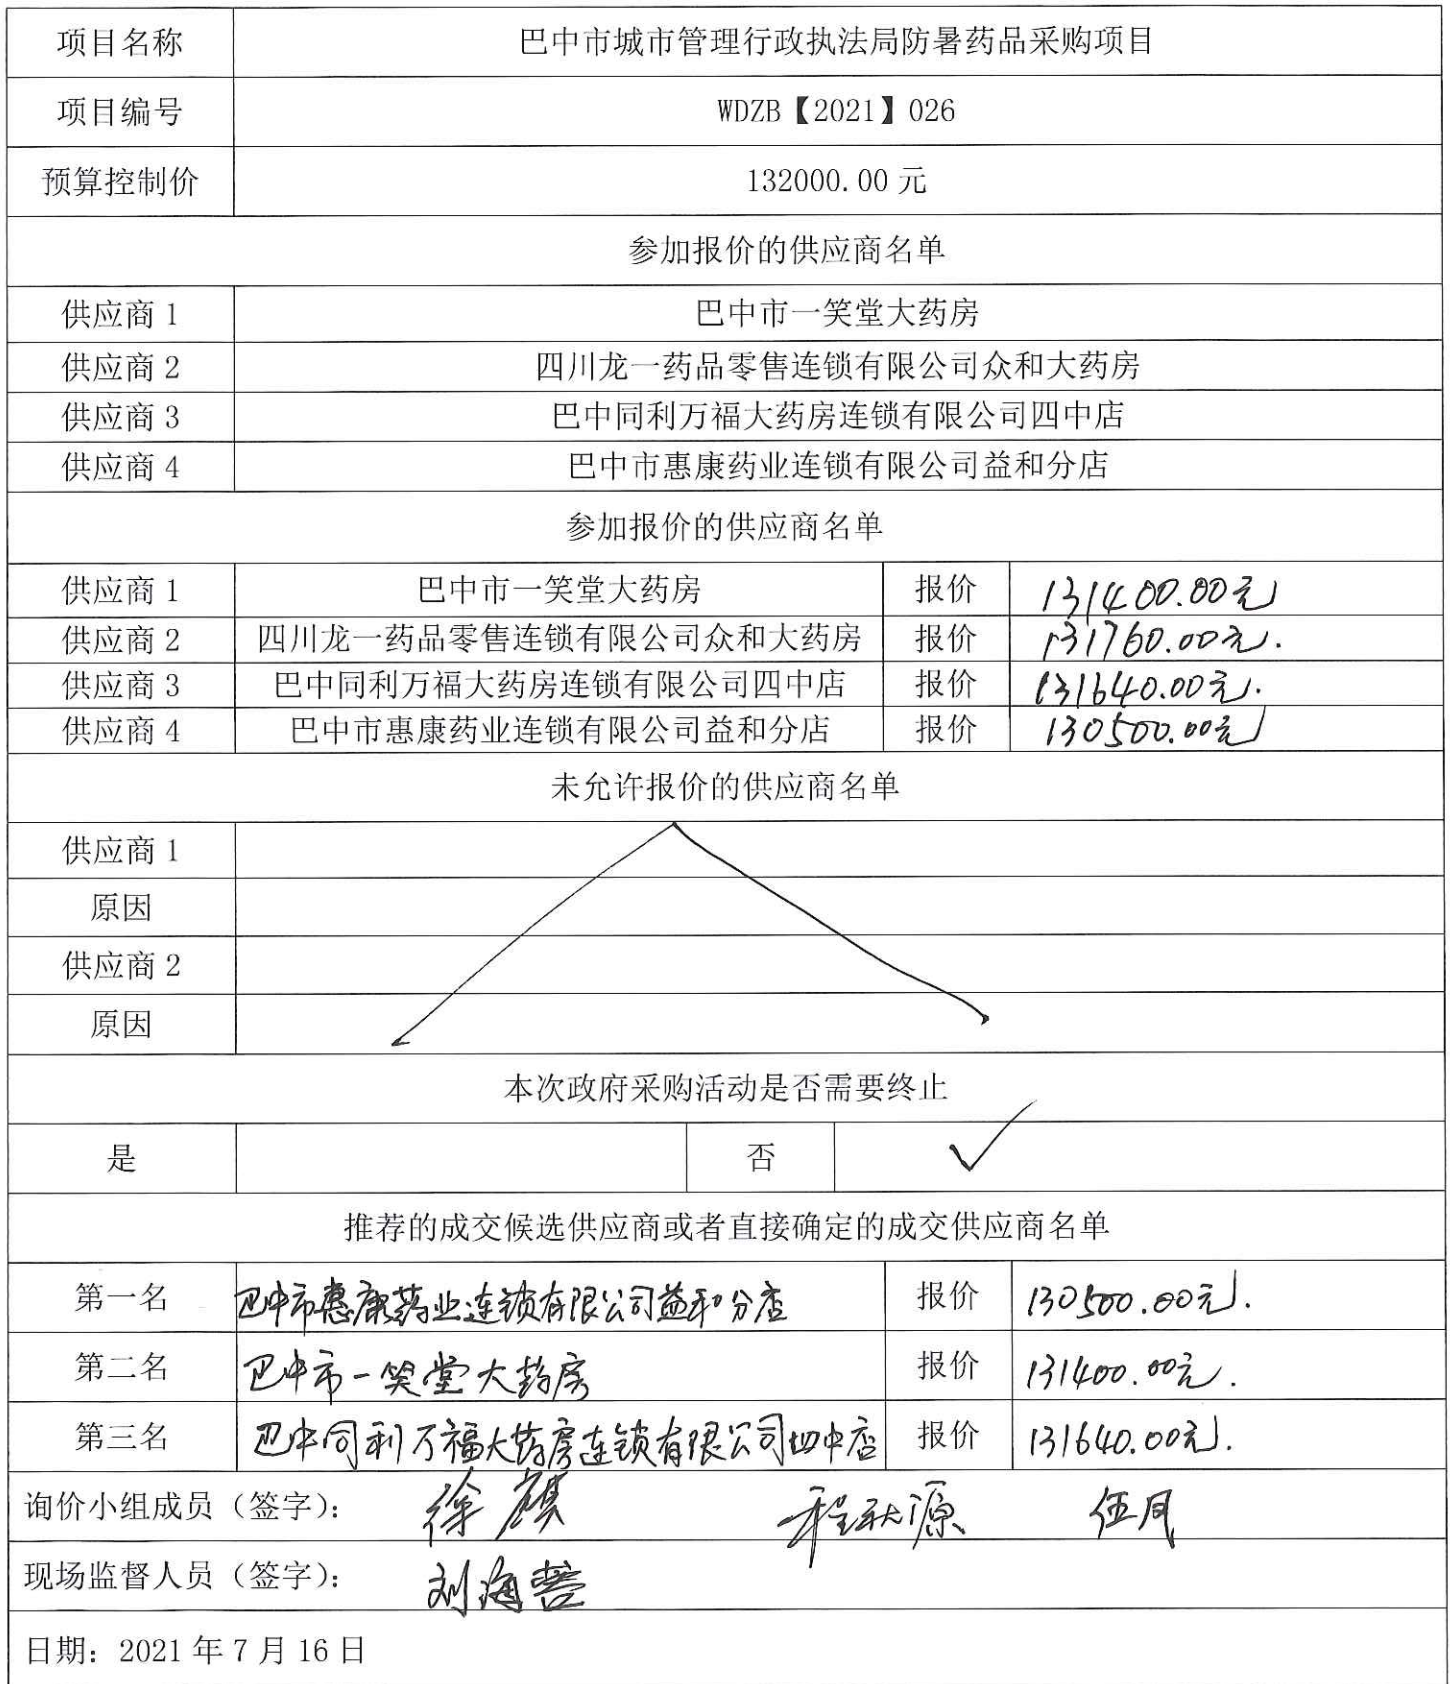 项目名称 巴中市城市管理行政执法局防暑药品采购项目
项目编号 WDZB【2021】026
预算控制价 132000.00 元
参加报价的供应商名单
供应商 1 巴中市一笑堂大药房
供应商 2 四川龙一药品零售连锁有限公司众和大药房
供应商 3 巴中同利万福大药房连锁有限公司四中店
供应商 4 巴中市惠康药业连锁有限公司益和分店
参加报价的供应商名单
供应商 1 巴中市一笑堂大药房 报价 131400.00元
供应商 2 四川龙一药品零售连锁有限公司众和大药房 报价 131760.00元.
供应商 3 巴中同利万福大药房连锁有限公司四中店 报价 131640.00元.
供应商 4 巴中市惠康药业连锁有限公司益和分店 报价 130500.00元
未允许报价的供应商名单
供应商 1
原因
供应商 2
原因
本次政府采购活动是否需要终止
是 否 ✓
推荐的成交候选供应商或者直接确定的成交供应商名单
第一名 巴中市惠康药业连锁有限公司益和分店 报价 130500.00元.
第二名 巴中市一笑堂大药房 报价 131400.00元.
第三名 巴中同利万福大药房连锁有限公司四中店 报价 131640.00元.
询价小组成员（签字）： 徐 程秋源 伍月
现场监督人员（签字）： 刘海
日期：2021 年 7 月 16 日